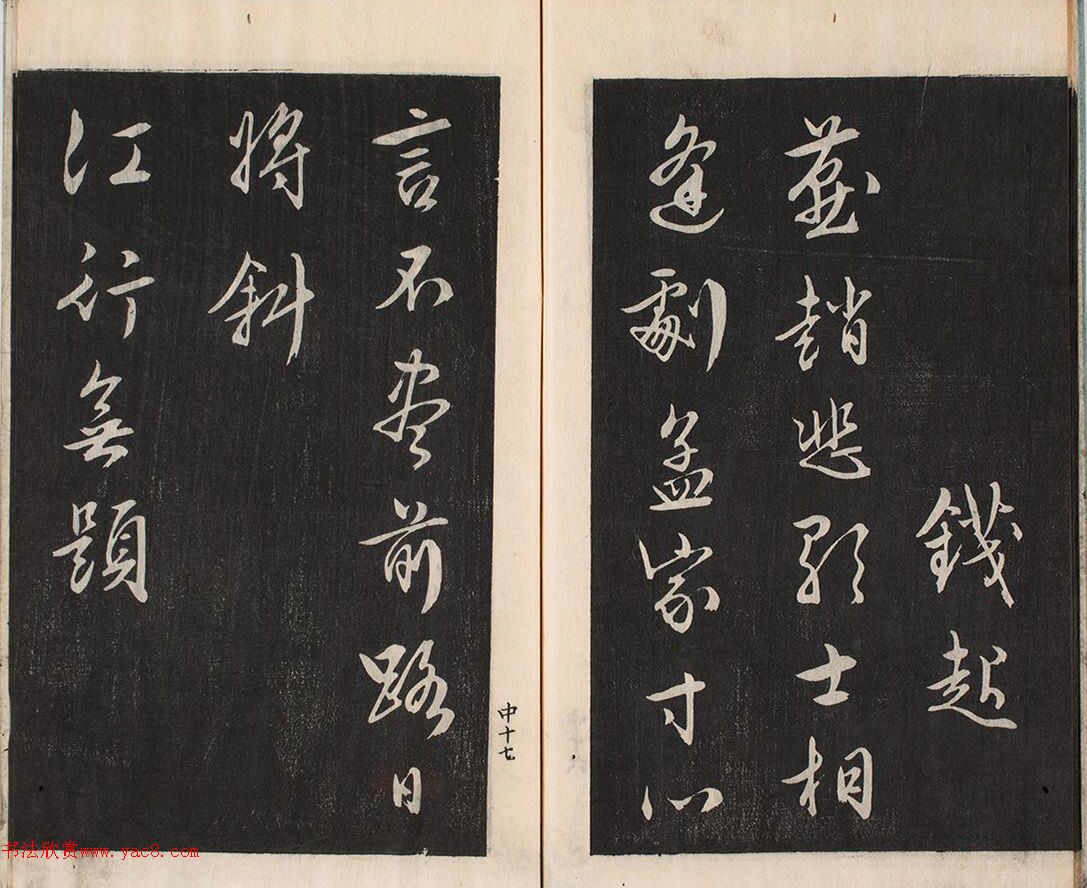 錢起
燕趙悲歌士相
逢劇孟家寸心
言不盡前路日
將斜
江行無題
中十七
书法欣赏www.yac8.com